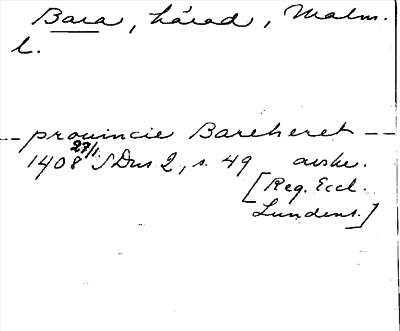 Bara, härad, Malm.
l.
-- provincie Bareheret --
1408 27/1 SDns 2, s. 49 avskr.
[Reg. Eccl.
Lundens.]